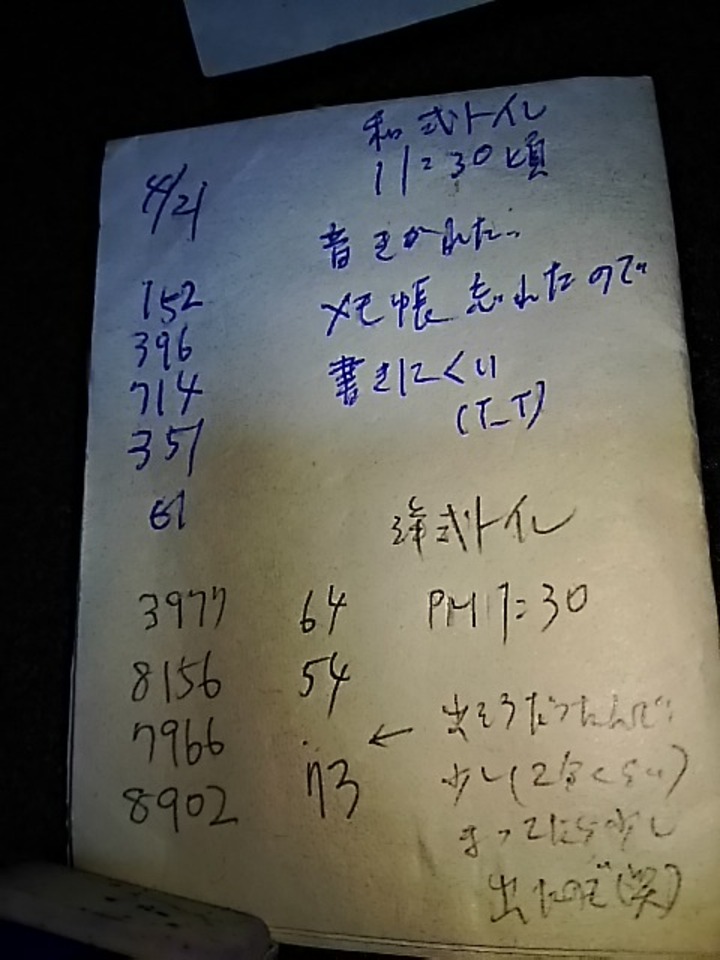 4/21
和式トイレ
11:30頃
音きかれた..
メモ帳忘れたので
書きにくい
(T_T)
152
396
714
351
61
洋式トイレ
PM 1:30
3977 64
8156 54
7966
8902 73
← 出そうだったんで
少し(2分くらい)
まってたら少し
出たので(笑)